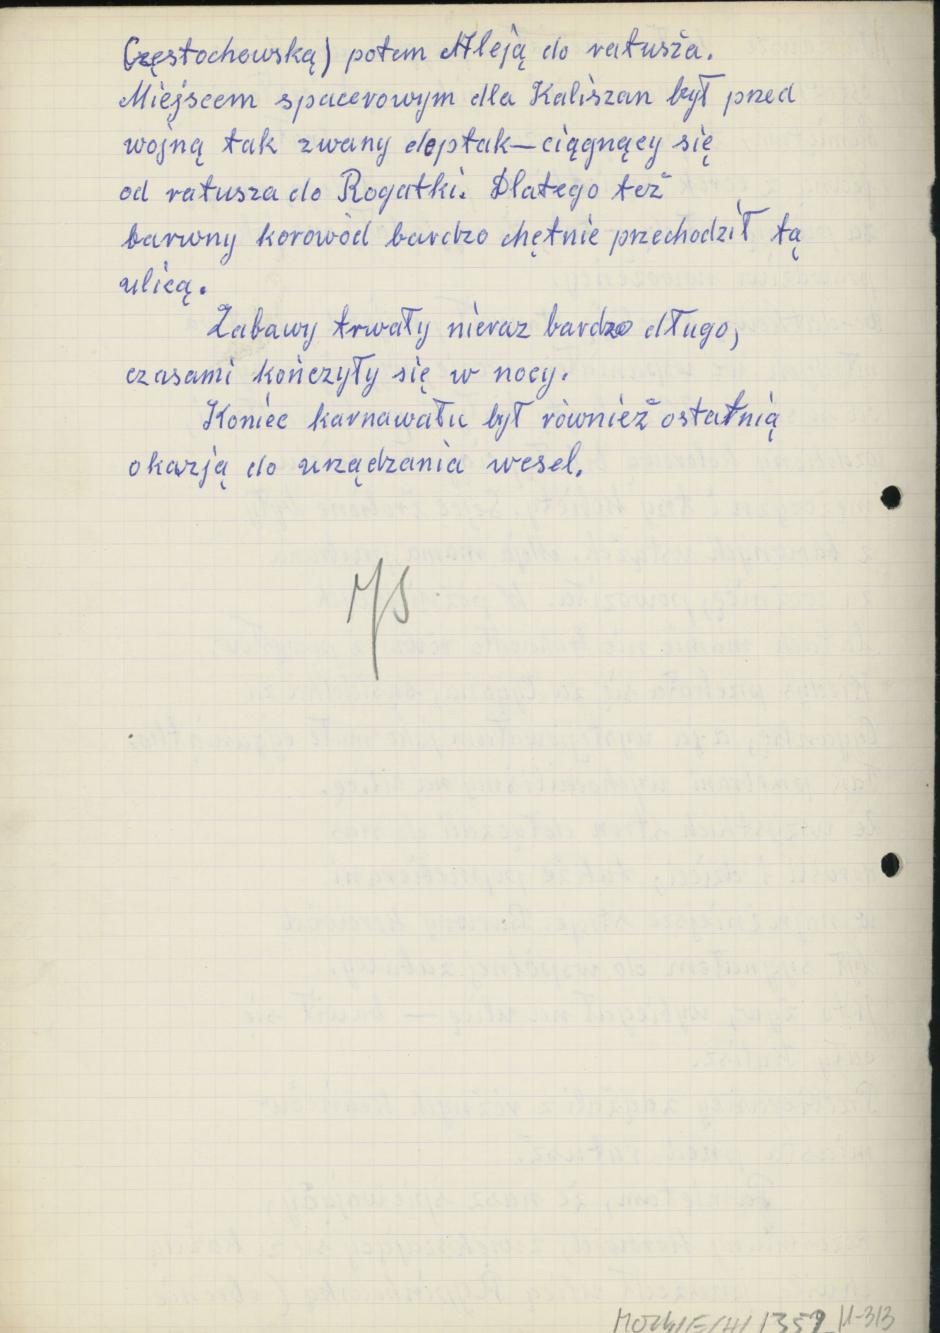 Częstochowską) potem Aleją do ratusza.
Miejscem spacerowym dla Kaliszan był przed
wojną tak zwany deptak—ciągnący się
od ratusza do Rogatki. Dlatego też
barwny korowód bardzo chętnie przechodził tą
ulicą.
Zabawy trwały nieraz bardzo długo,
czasami kończyły się w nocy.
Koniec karnawału był również ostatnią
okazją do urządzania wesel.